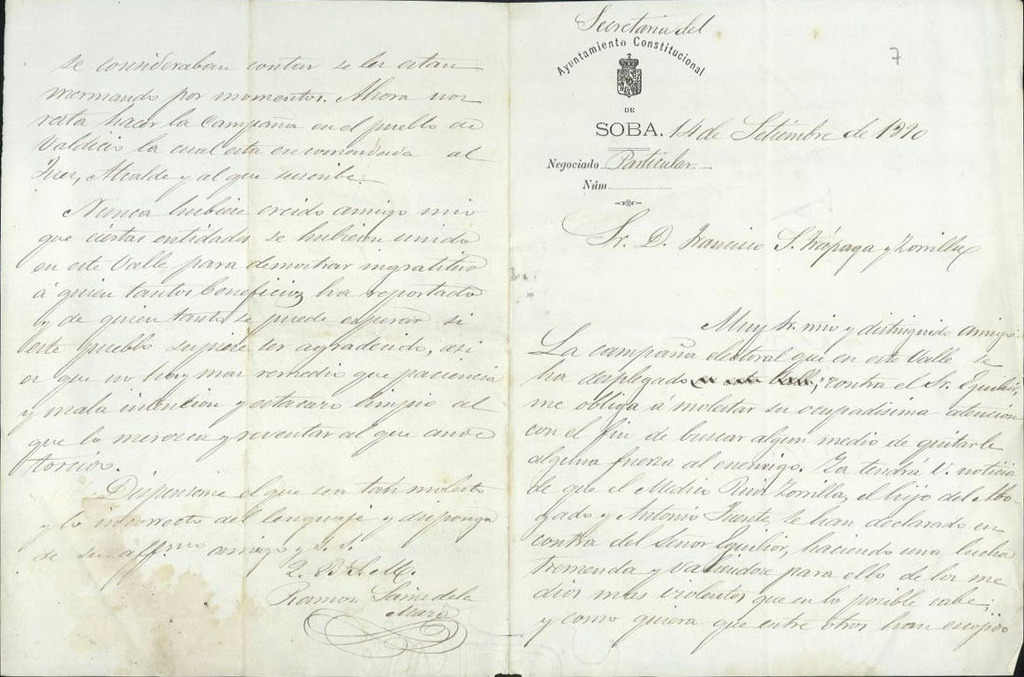 Secretaria del
Ayuntamiento Constitucional
DE
SOBA. 14 de Setiembre de 1890
Negociado Particular
Núm
7
Sr. D. Francisco S. Trápaga y Zorrilla
Muy Sr. mio y distinguido amigo:
La campaña electoral que en este Valle se
ha desplegado contra el Sr. Eguilior,
me obliga á molestar su ocupadisima atencion
con el fin de buscar algun medio de quitarle
alguna fuerza al enemigo. Ya tendrá V. noticia
de que el Medico Ruiz Zorrilla, el hijo del Abo
gado y Antonio Fuente, se han declarado en
contra del Señor Eguilior, haciendo una lucha
tremenda y valiendose para ello de los me
dios mas violentos que en lo posible cabe;
y como quiera que entre otros han escojido
se consideraban contar se les estan
mermando por momentos. Ahora nos
resta hacer la campaña en el pueblo de
Valdicio la cual esta encomendada al
Juez, Alcalde y al que suscribe.
Nunca hubiese creido amigo mio
que ciertas entidades se hubiesen unido
en este Valle para demostrar ingratitud
á quien tantos beneficios ha reportado
y de quien tanto se puede esperar si
este pueblo supiese ser agradecido, asi
es que no hay mas remedio que paciencia
y mala intencion y estacazo limpio al
que lo merezca y reventar al que ande
torcido.
Dispenseme el que sea tan molesto
y lo incorrecto del lenguaje y disponga
de su affmo amigo y S. S.
Q. B. S. M.
Ramon Sainz de la
Maza